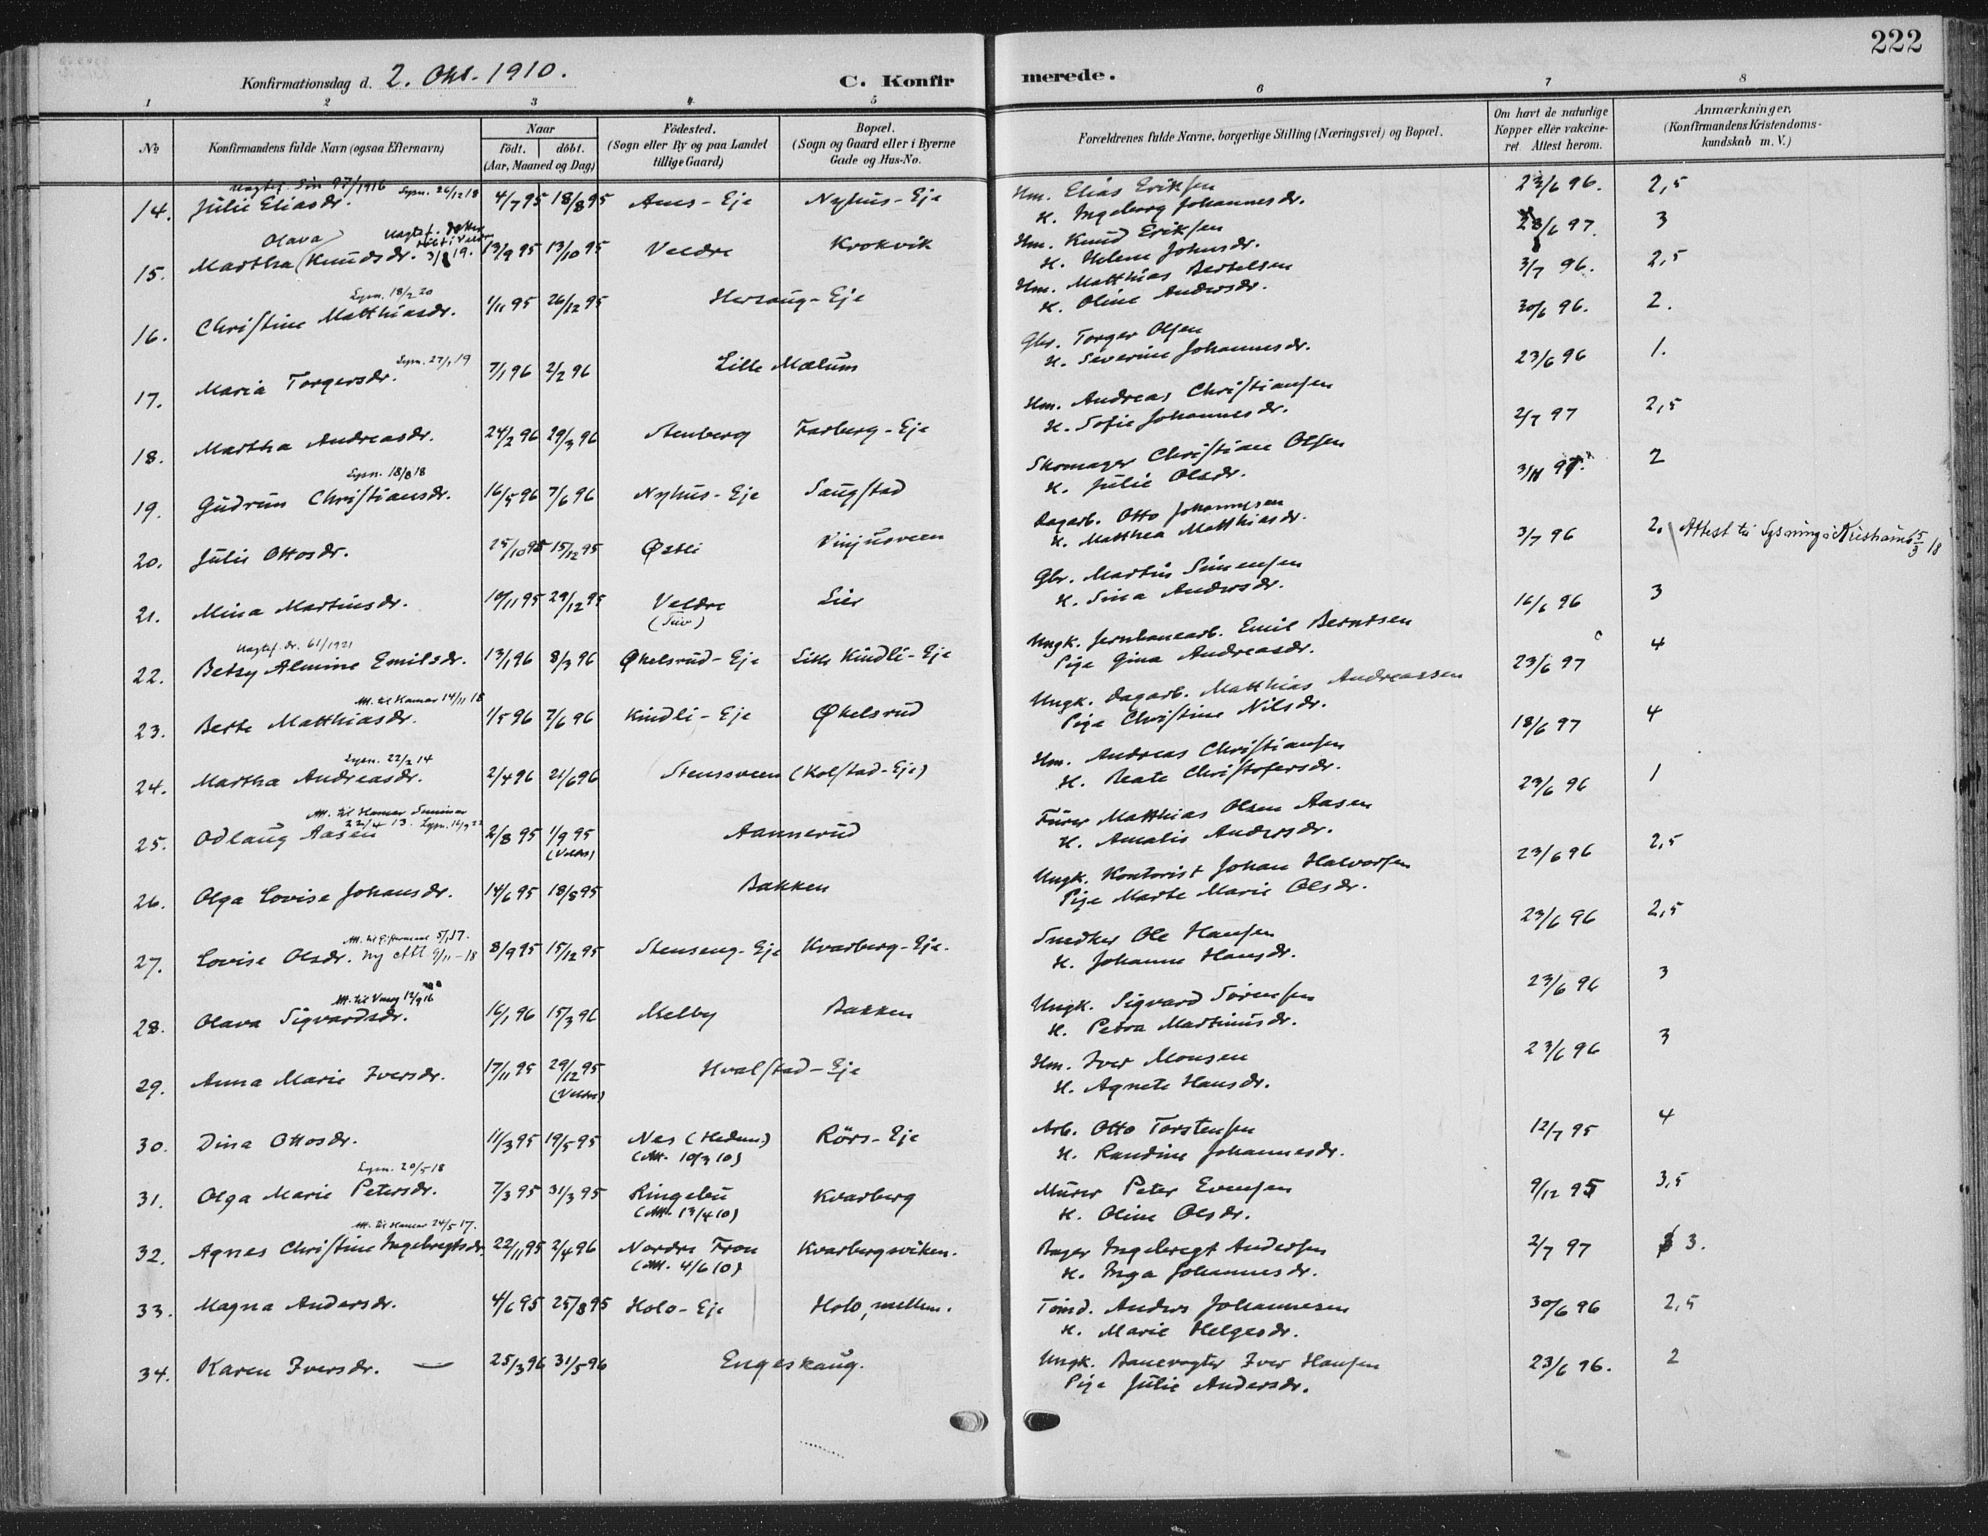 222
Konfirmationsdag d. 2. Okt. 1910. C. Konfirmerede.
1 2 3 4 5 6 7 8
№ Konfirmandens fulde Navn (ogsaa Efternavn) Naar födt. döbt. (Aar, Maaned og Dag) Födested. (Sogn eller By og paa Landet tillige Gaard) Bopæl. (Sogn og Gaard eller i Byerne Gade og Hus-No. Forældrenes fulde Navne, borgerlige Stilling (Næringsvei) og Bopæl. Om havt de naturlige Kopper eller vakcineret. Attest herom. Anmærkninger. (Konfirmandens Kristendomskundskab m. V.)
Uegtef. Søn 97/1916 Lysn. 26/12 18
14. Julie Eliasdr. 4/7 95 18/8 95 Aens-Eje Nyhus-Eje Hm. Elias Eriksen 23/6 96. 2,5
H. Ingeborg Johannesdr.
Olava Uegtef.
15. Martha Knudsdr. 13/9 95 13/10 95 Veldre Krokvik Hm. Knud Eriksen 23/6 97. 3
H. Helene Johnsdr.
Lysn. 18/2 20
16. Christine Matthiasdr. 1/11 95 26/12 95 Hersaug-Eje Hm. Matthias Bertelsen 3/7 96. 2,5
H. Oline Andersdr.
Lysn. 27/1 19
17. Maria Torgersdr. 7/1 96 2/2 96 Lille Mælum Gbr. Torger Olsen 30/6 96. 2.
H. Severine Johannesdr.
18. Martha Andreasdr. 24/2 96 29/3 96 Stenberg Farberg-Eje Hm. Andreas Christiansen 23/6 96 1.
H. Sofie Johannesdr.
Lysn. 18/8 18
19. Gudrun Christiansdr. 16/5 96 7/6 96 Nyhus-Eje Saugstad Skomager Christian Olsen 2/7 97 2,5
H. Julie Olsdr.
20. Julie Ottosdr. 25/10 95 15/12 95 Østli Vinjusveen Dagarb. Otto Johannesen 3/11 97. 2
H. Matthea Matthiasdr.
21. Mina Martinsdr. 10/11 95 29/12 95 Veldre Lier Gbr. Martin Simensen 3/7 96 2. Attest til Lysning i Kristiania 5/3 18
H. Sina Andersdr.
Uegtef. dr. 61/1921
22. Betsy Almine Emilsdr. 13/1 96 8/3 96 Økelsrud-Eje Lille Kindli-Eje Ungk. Jernbanearb. Emil Berntsen 16/6 96 3
Pige Gina Andreasdr.
Att. til Hamar 14/11 18
23. Berte Matthiasdr. 1/5 96 7/6 96 Kindli-Eje Økelsrud Ungk. Dagarb. Matthias Andreassen 23/6 97 4
Pige Christine Nilsdr.
Lysn. 22/2 14
24. Martha Andreasdr. 2/4 96 21/6 96 Stenssveen (Kolstad-Eje) Hm. Andreas Christiansen 18/6 97 4
H. Beate Christofersdr.
Att. til Hamar Seminar 22/4 13. Lysn. 16/9 22
25. Odlaug Aasen 2/8 95 1/9 95 Aannerud Furer Matthias Olsen Aasen 23/6 96 1
H. Amalie Andersdr.
26. Olga Lovise Johansdr. 14/6 95 18/8 95 Bakken Ungk. Kontorist Johan Halvorsen 23/6 96 2,5
Pige Marte Marie Olsdr.
27. Lovise Olsdr. Ny Att 9/11-18 8/9 95 15/12 95 Stenseng-Eje Kvarberg-Eje. Snedker Ole Hansen 23/6 96 2,5
H. Johanne Hansdr.
Att. til Vang 12/9 16
28. Olava Sigvardsdr. 16/1 96 15/3 96 Melby Bakken Ungk. Sigvard Sørensen 23/6 96 3
H. Petra Martinusdr.
29. Anna Marie Iversdr. 17/11 95 29/12 95 Hvalstad-Eje Hm. Iver Monsen 23/6 96 3
H. Agnete Hansdr.
30. Dina Ottosdr. 11/3 95 19/5 95 Nes (Hedem) Rörs-Eje Arb. Otto Torstensen 12/7 95 4
(Att. 10/3 10) H. Randine Johannesdr.
Lysn. 20/5 18
31. Olga Marie Petersdr. 7/3 95 31/3 95 Ringebu Kvarberg Murer Peter Evensen 9/12 95 3,5
(Att. 13/4 10) H. Oline Olsdr.
Att. til Hamar 24/5 17.
32. Agnes Christine Ingebregtsdr. 22/11 95 2/4 96 Nordre Fron Kvarbergsviken. Bager Ingebregt Andersen 2/7 97 3.
(Att. 4/6 10) H. Inga Johannesdr.
33. Magna Andersdr. 4/6 95 25/8 95 Holo-Eje Holo, mellem. Tömd. Anders Johannesen 30/6 96 2,5
H. Marie Helgesdr.
34. Karen Iversdr. 25/3 96 31/5 96 Engeskaug. Ungk. Banevogter Iver Hansen 23/6 96. 2
Pige Julie Andersdr.